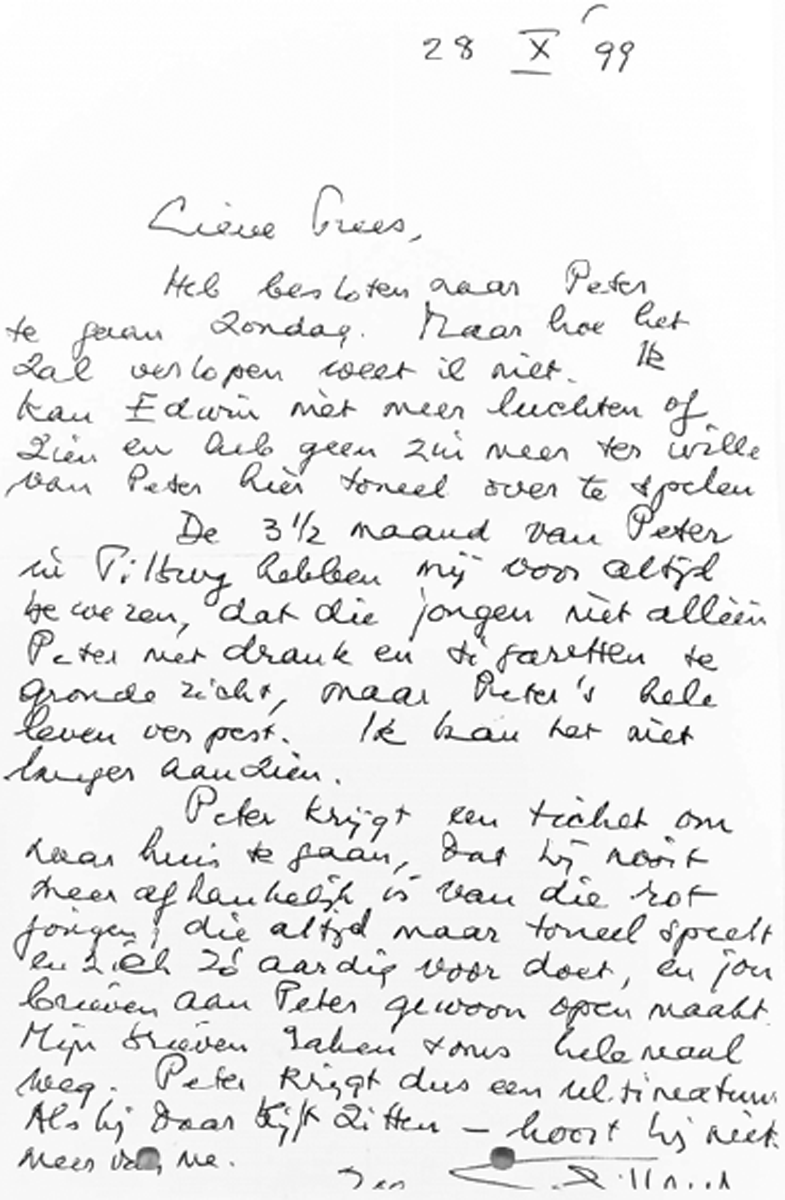 28 X '99
Lieve Trees,
Heb besloten naar Peter
te gaan Zondag. Maar hoe het
zal verlopen weet ik niet. Ik
kan Edwin niet meer luchten of
zien en heb geen zin meer ter wille
van Peter hier toneel over te spelen
De 3 1/2 maand van Peter
in Tilburg hebben mij voor altijd
bewezen, dat die jongen niet alléén
Peter met drank en sigaretten te
gronde richt, maar Peter's hele
leven verpest. Ik kan het niet
langer aanzien.
Peter krijgt een ticket om
naar huis te gaan, dat hij nooit
meer afhankelijk is van die rot
jongen, die altijd maar toneel speelt
en zich zó aardig voor doet, en jou
brieven aan Peter gewoon open maakt.
Mijn brieven raken soms helemaal
weg. Peter krijgt dus een ultimatum.
Als hij daar blijft zitten – hoort hij niet
meer van me.